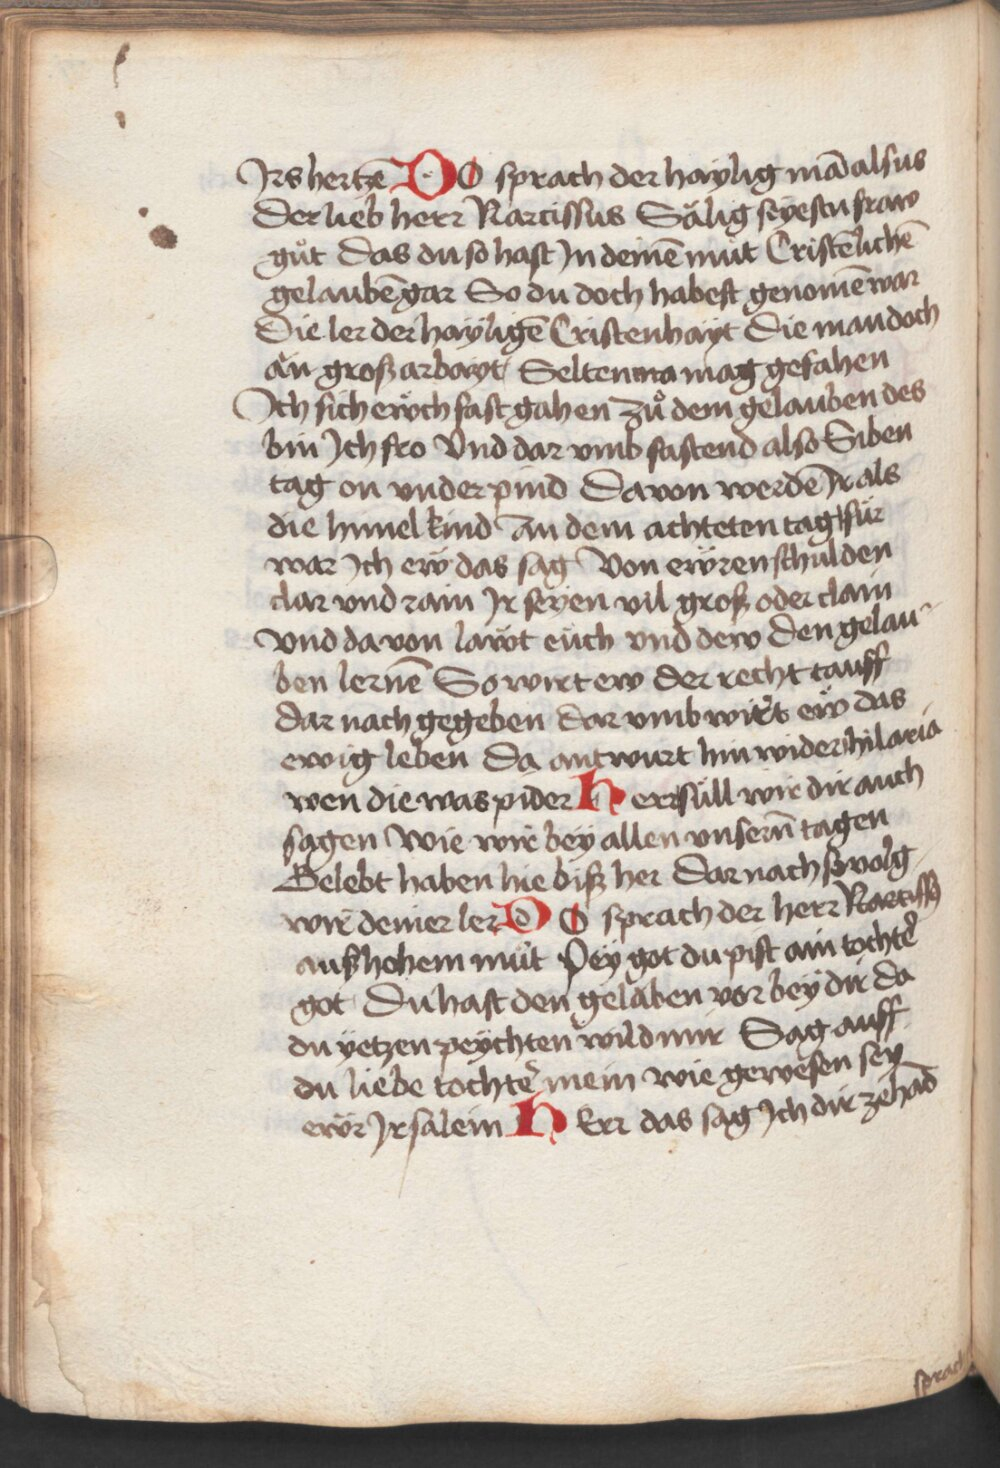 Irs hertzē DO sprach der haylig mā alsus
Der lieb herr Narcissus Sälig seyestu fraw
gůt Das du so hast In deinē mut Cristēlichē
gelaubē gar So du doch habest genomē war
Die ler der hayligē Cristenhayt Die man doch
ān groß arbayt Selten ma mag gefahen
Ich sich ewch fast gahen zů dem gelauben des
bin Ich fro Vnd dar vmb fastend also Siben
tag on vnder pind Da von werdē Ir als
die himel kind An dem achteten tag für
war Ich ew das sag Von ewren schulden
clar vnd rain Ir seyen vil groß oder clain
vnd da von lawt euch vnd dew den gelau-
ben lernē So wirt ew der recht tauff
dar nach gegeben dar vmb wirt ew das
ewig leben Da antwurt hin wider hilaria
wen die was pider Herr süll wir dir auch
sagen Wie wir bey allen vnsern̄ tagen
Gelebt haben hie biß her Dar nach so volg
wir deiner ler DO sprach der herr Narcissꝯ
auß hohem můt Pey got du pist ain tochter
got Du hast den gelaben vor bey dir da
du yetzen peychten wild mir Sag auff
du liebe tochter mein wie gewesen sey
ewr Irsalein HErr das sag Ich dir zehād
sprach